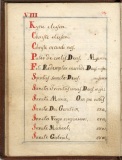 viii
Kyrie eleison.
Christe eleison.
Christe audi nos.
Pater de cœlis Deus. Miserere
Fili Redemptor mundi Deus
Spiritus sancte Deus.
Sancta Trinitas unus Deus
Sancta Maria. Ora pro nobis
Sancta Dei Genitrix.
Sancta Virgo virginum.
Sancte Michael.
Sancte Gabriel.